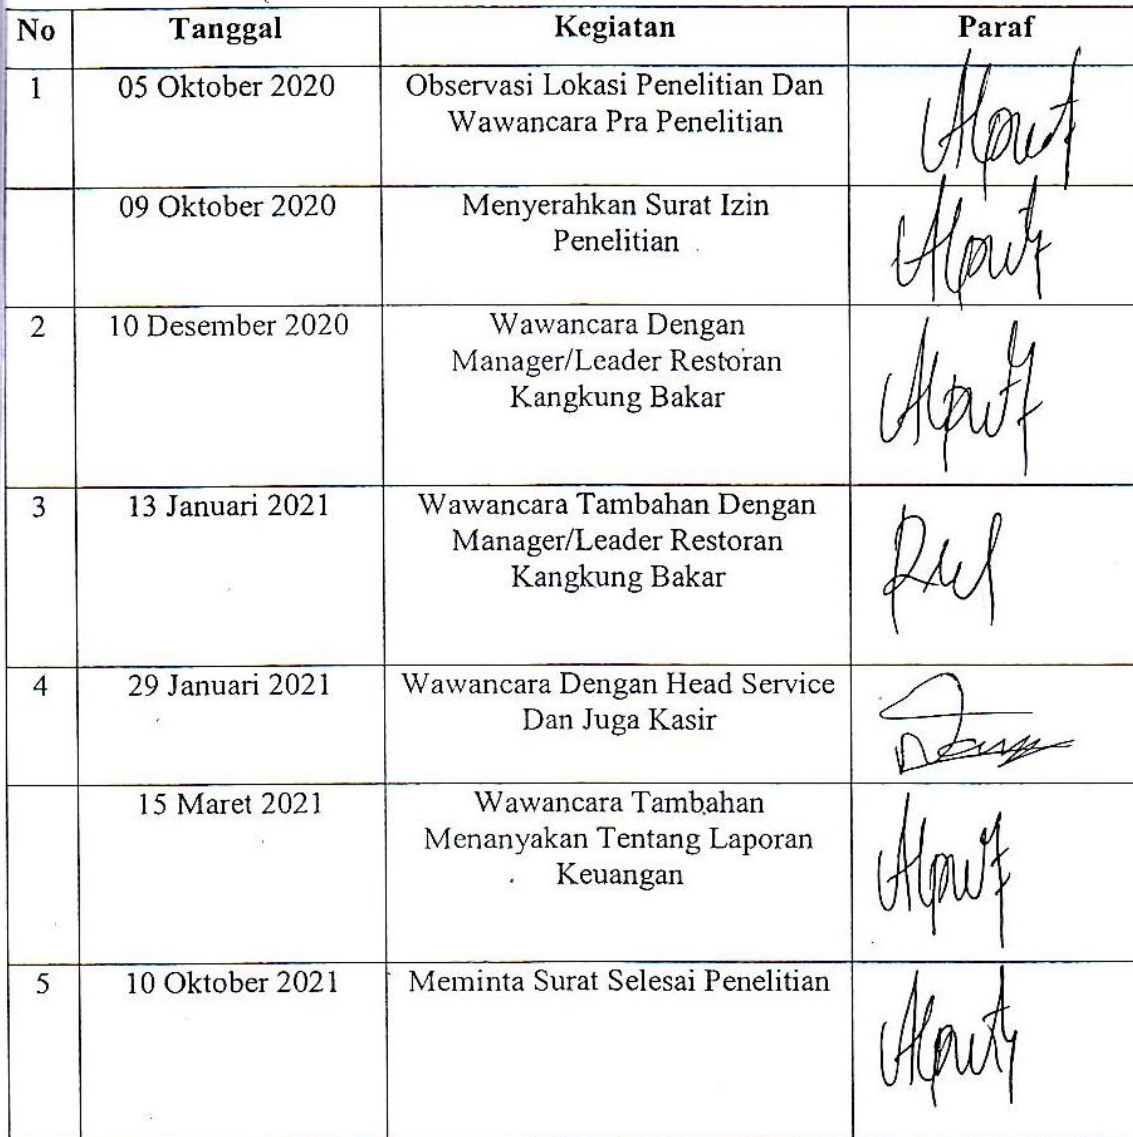 No Tanggal Kegiatan Paraf
1 05 Oktober 2020 Observasi Lokasi Penelitian Dan
Wawancara Pra Penelitian
09 Oktober 2020 Menyerahkan Surat Izin
Penelitian
2 10 Desember 2020 Wawancara Dengan
Manager/Leader Restoran
Kangkung Bakar
3 13 Januari 2021 Wawancara Tambahan Dengan
Manager/Leader Restoran
Kangkung Bakar
4 29 Januari 2021 Wawancara Dengan Head Service
Dan Juga Kasir
15 Maret 2021 Wawancara Tambahan
Menanyakan Tentang Laporan
Keuangan
5 10 Oktober 2021 Meminta Surat Selesai Penelitian